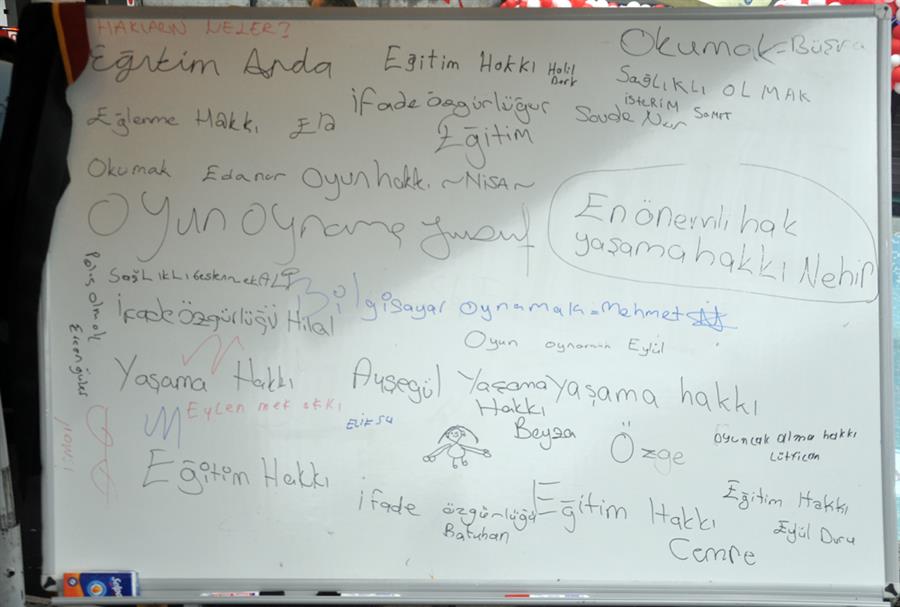 HAKLARIN NELER?
Eğitim Arda
Eğitim Hakkı Halil
Okumak = Büşra
SAĞLIKLI OLMAK
İSTERİM SAMET
Eğlenme Hakkı Ela
İFade özgürlüğü
Eğitim
Sevde Nur
Okumak Edanur
Oyun hakkı ~NİSA~
Oyun Oynama Yusuf
En önemli hak
yaşama hakkı Nehir
Polis olmak
SAĞLIKLI beslenmek ALP
İfade özgürlüğü Hilal
Bilgisayar oynamak = Mehmet
Oyun oynamak Eylül
Yaşama Hakkı
Ayşegül
Yaşama
Hakkı
Beyza
yaşama hakkı
Özge
Eylen mek akkı
ELİF SU
Oyuncak alma hakkı
Lütfican
Eğitim Hakkı
İfade özgürlüğü
Batuhan
Eğitim Hakkı
Cemre
Eğitim Hakkı
Eylül Duru